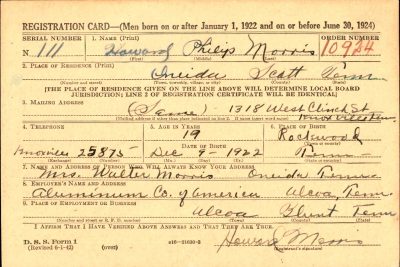 REGISTRATION CARD—(Men born on or after January 1, 1922 and on or before June 30, 1924)
SERIAL NUMBER 1. NAME (Print) ORDER NUMBER
N 111 Howard Philip Morris 10924
(First) (Middle) (Last)
2. PLACE OF RESIDENCE (Print)
Oneida Scott Tenn
(Number and street) (Town, township, village, or city) (County) (State)
[THE PLACE OF RESIDENCE GIVEN ON THE LINE ABOVE WILL DETERMINE LOCAL BOARD
JURISDICTION; LINE 2 OF REGISTRATION CERTIFICATE WILL BE IDENTICAL]
3. MAILING ADDRESS
(Same) 1318 West Clinch St
Knoxville Tenn
[Mailing address if other than place indicated on line 2. If same insert word same]
4. TELEPHONE 5. AGE IN YEARS 6. PLACE OF BIRTH
19 Rockwood
DATE OF BIRTH (Town or county)
Knoxville 25875 Dec 9- 1922 Tenn
(Exchange) (Number) (Mo.) (Day) (Yr.) (State or country)
7. NAME AND ADDRESS OF PERSON WHO WILL ALWAYS KNOW YOUR ADDRESS
Mrs. Walter Morris Oneida Tenn
8. EMPLOYER'S NAME AND ADDRESS
Aluminum Co. of America Alcoa, Tenn.
9. PLACE OF EMPLOYMENT OR BUSINESS
Alcoa Tenn
(Number and street or R. F. D. number) (Town) (County) (State)
I AFFIRM THAT I HAVE VERIFIED ABOVE ANSWERS AND THAT THEY ARE TRUE.
D. S. S. Form 1
(Revised 6-1-42) (over) 16—21630-2 Howard Morris
(Registrant's signature)